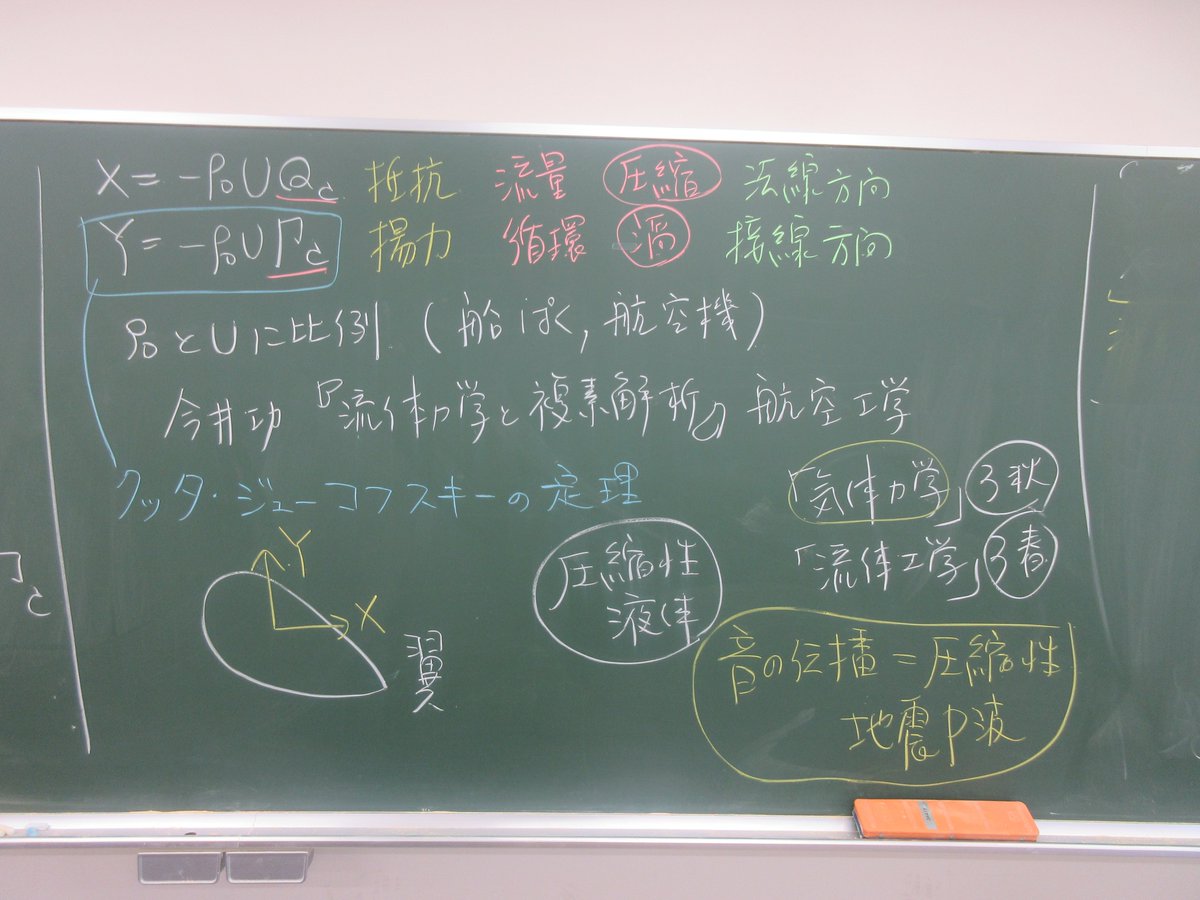 X = -ρ₀UQc 抵抗 流量 圧縮 法線方向
Y = -ρ₀UΓc 揚力 循環 渦 接線方向
ρ₀とUに比例 (船ぱく, 航空機)
今井功『流体力学と複素解析』航空工学
クッタ・ジューコフスキーの定理
「気体力学」3秋
「流体工学」3春
Y
X
翼
圧縮性
液体
音の伝播=圧縮性
地震P波
Γc